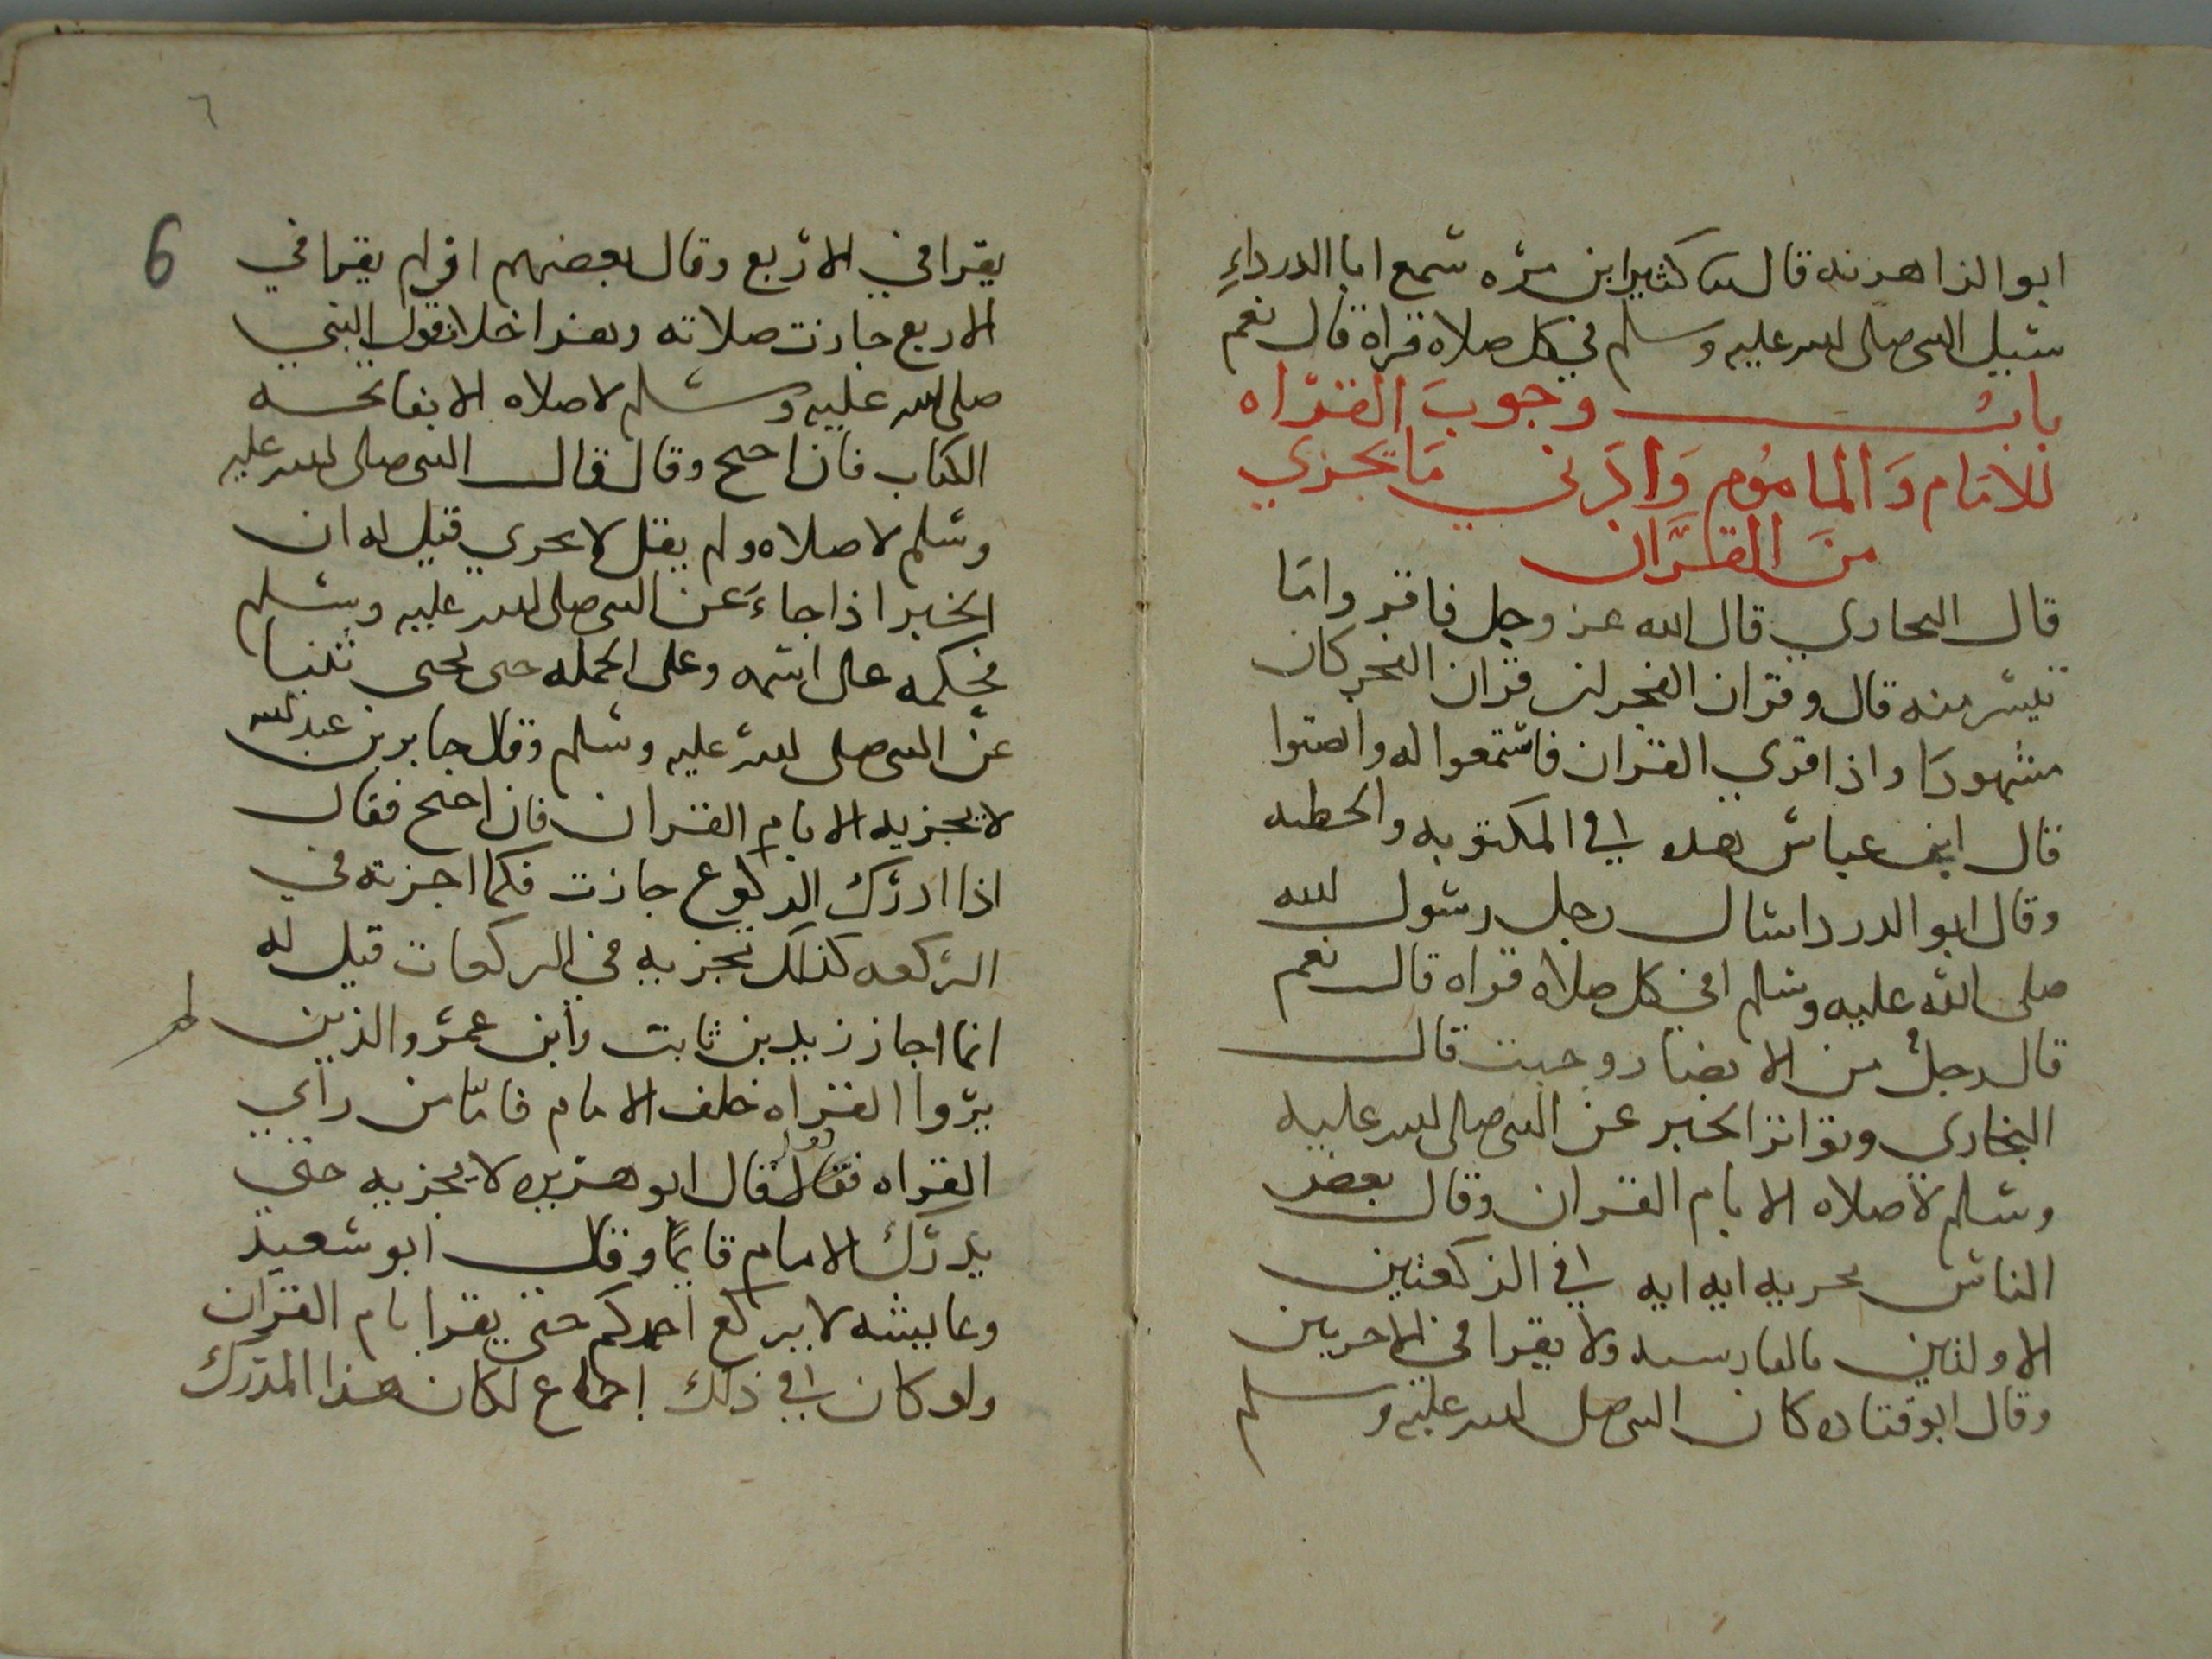 ابو الزاهريه قال سا كثير ابن مره سمع ابا الدرداءِ
سيل النبي صلى الله عليه وسلم في كل صلاه قراة قال نعم
بابُ وجوبَ القرّاه
للامَام وَالمامُوم وَادَني مَا يجزي
منَ القرّان
قال البخاري قال الله عز وجل فاقرواما
تيسر منه قال وقران الفجر ان قران الفجر كان
مشهودًا واذا قري القران فاستمعوا له وانصتوا
قال ابن عباس هده في المكتوبه والخطبه
وقال ابو الدردا سال رجل رسول الله
صلى الله عليه وسلم افي كل صلاه قراه قال نعم
قال رجلٌ من الانصار وجبت قال
البخاري وتواتر الخبر عن النبي صلى الله عليه
وسلم لا صلاه الا بام القران وقال بعض
الناس يجزيه ايه ايه في الركعتين
الاولتين بالفارسيه ولا يقرا في الاخريين
وقال ابو قتاده كان النبي صلى الله عليه وسلم
٦
6
يقرا في الاربع وقال بعضهم ان لم يقرا في
الاربع جازت صلاته وهذا خلاف قول النبي
صلى الله عليه وسلم لا صلاه الا بفاتحه
الكتاب فان احتج وقال قال النبي صلى الله عليه
وسلم لا صلاه ولم يقل لا يجزي قيل له ان
الخبر اذا جاءَ عن النبي صلى الله عليه وسلم
فحكمه على اسمه وعلى الجمله حتى يجي
عن النبي صلى الله عليه وسلم وقال جابر بن عبد الله
لا يجزيه الا بام القران فان احتج فقال
اذا ادرك الركوع جازت فكما اجزته في
الركعه كذلك تجزيه في الركعات قيل له
انما اجاز زيد بن ثابت وابن عمر والذين لم
يرّوا القراه خلف الامام فامّا من راي
القراه فقد قال ابو هريره لا يجزيه حتي
يدرك الامام قايمًا وقال ابو سعيد
وعايشه لا يركع احدكم حتى يقرا بام القران
ولو كان في ذلك اجماع لكان هذا المدرك